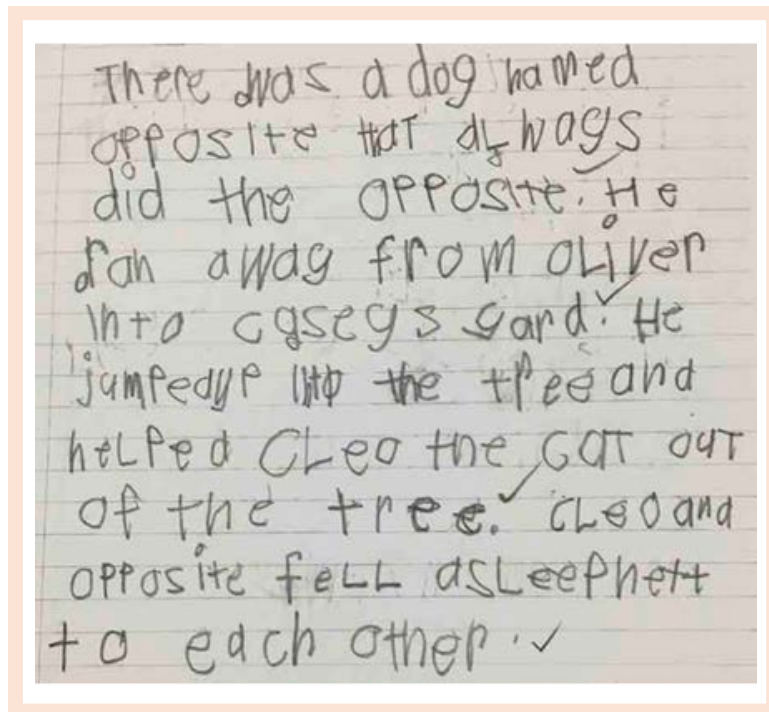 There was a dog named
opposite that always
did the opposite. He
ran away from oliver
into caseys yard. He
jumpedup into the tree and
helped Cleo the cat out
of the tree. cleo and
opposite fell asleep next
to each other.